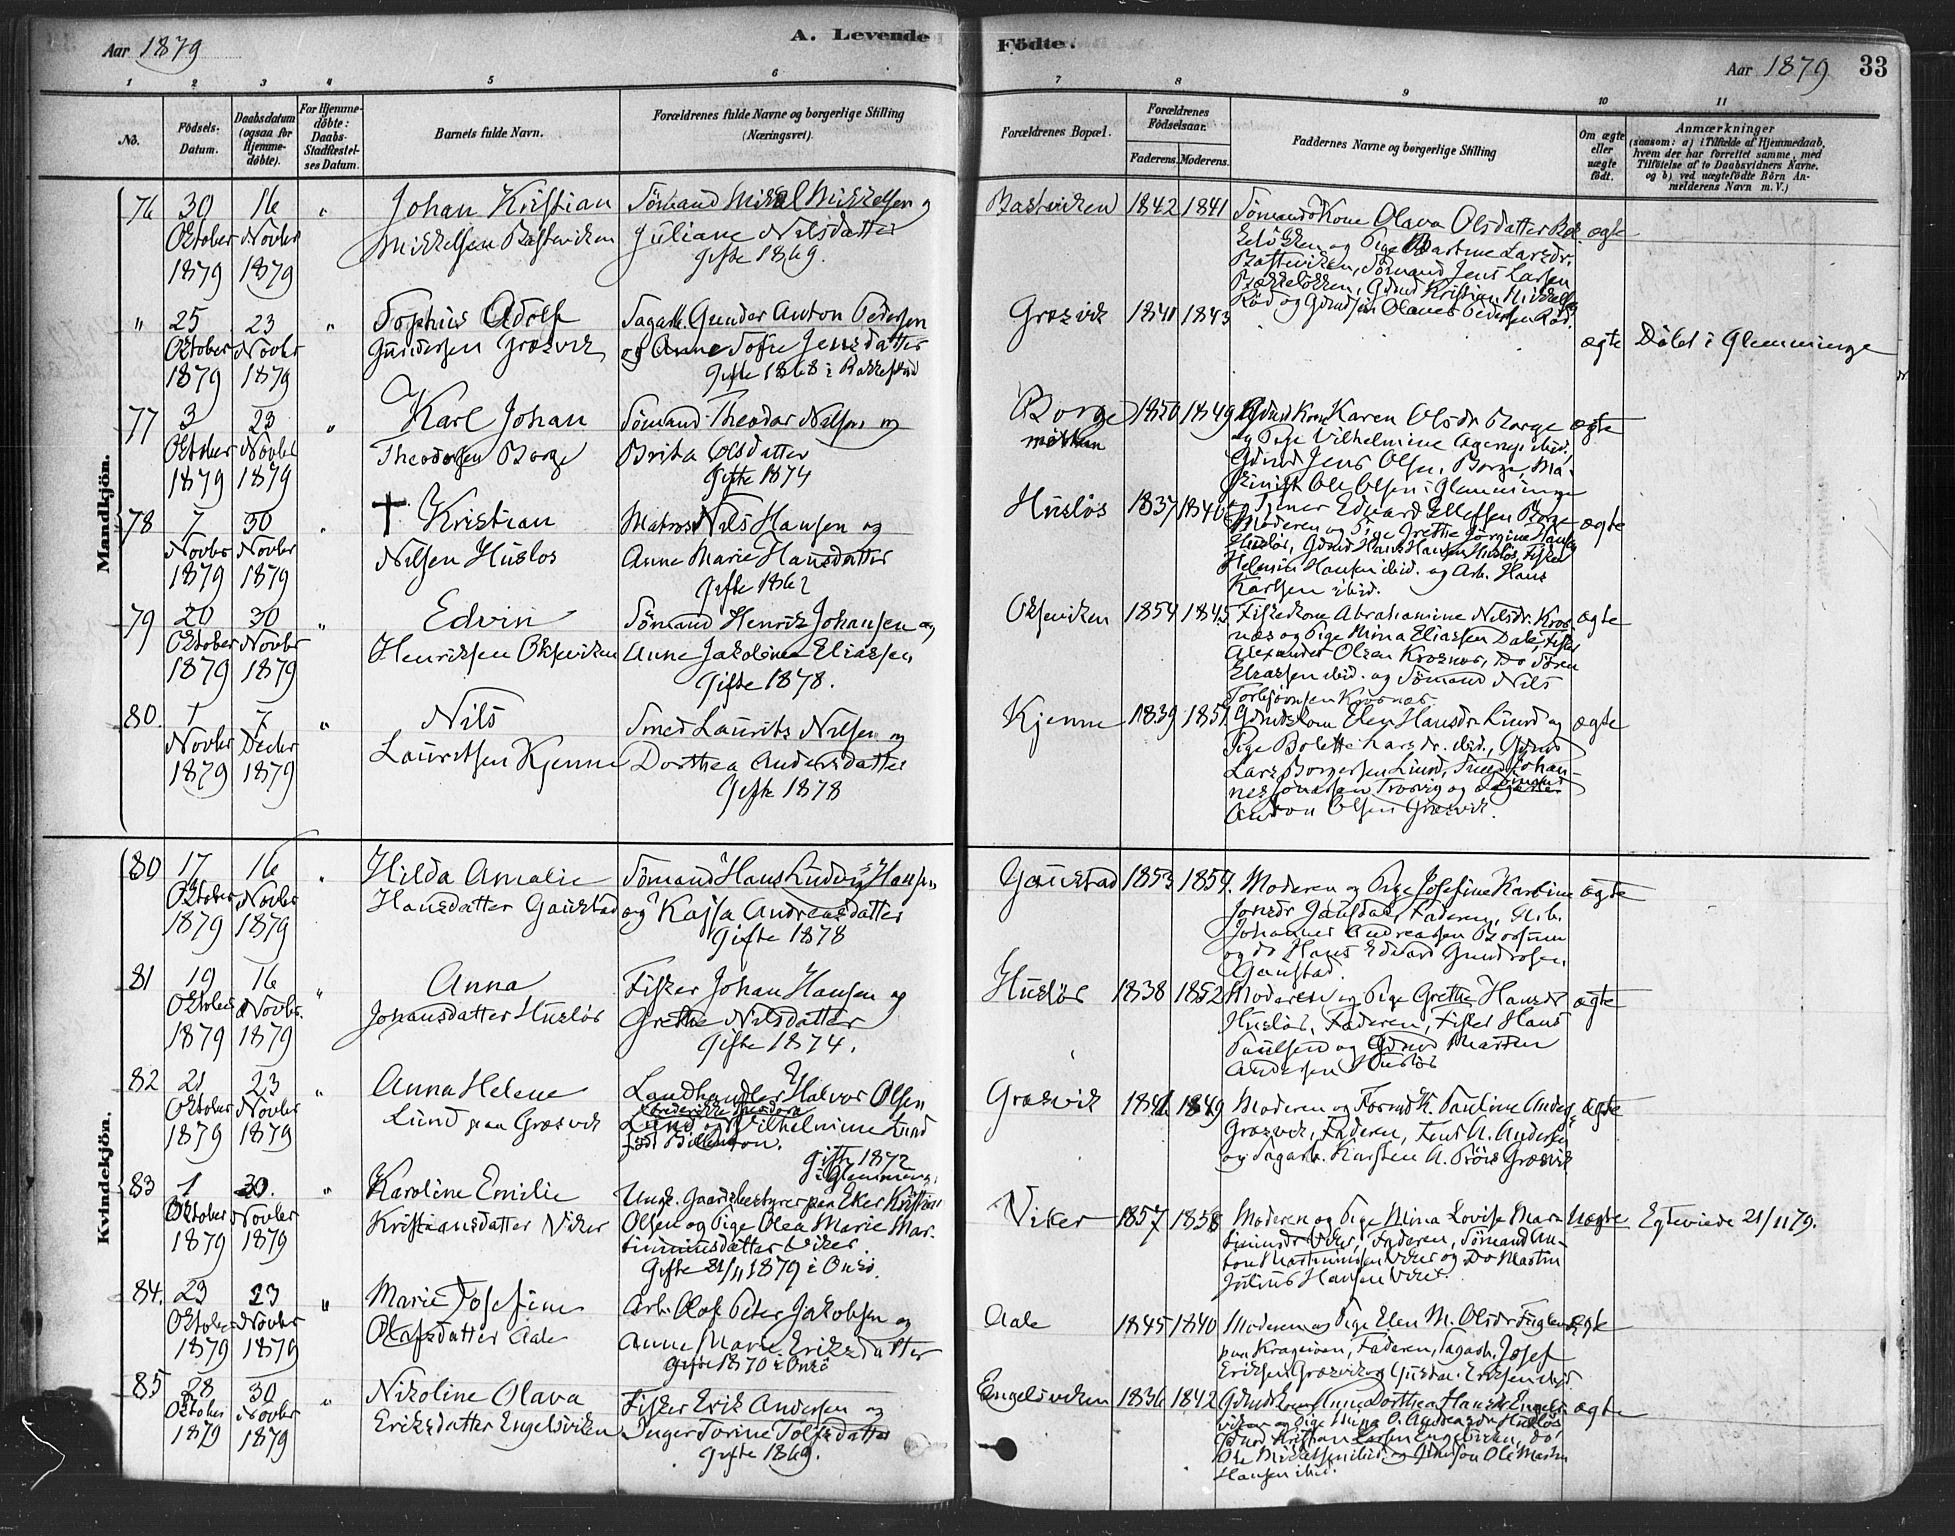 Aar 1879
A. Levende Födte.
Aar 1879
33
1 2 3 4 5 6 7 8 9 10 11
No.
Födsels-Datum.
Daabsdatum (ogsaa for Hjemme-döbte).
For Hjemme-döbte: Daabs-Stadfæstel-ses Datum.
Barnets fulde Navn.
Forældrenes fulde Navne og borgerlige Stilling (Næringsvei).
Forældrenes Bopæl.
Forældrenes Födselsaar.
Faderens. Moderens.
Faddernes Navne og borgerlige Stilling
Om ægte eller uægte födt.
Anmærkninger
(saasom: a) i Tilfælde af Hjemmedaab,
hvem der har forrettet samme, med
Tilföielse af to Daabsvidners Navne,
og b) ved uægtefödte Börn An-
melderens Navn m. V.)
Mandkjön.
76 30 16 " Johan Kristian Sömand Mikal Mikkelsen og Bastviken 1842 1841 Sömandskone Olava Olsdatter ægte
Oktober Novbr Mikkelsen Bastviken Juliane Nilsdatter
1879 1879 Gifte 1869.
Bastviken, Sömand Jens Larsen
" 25 23 " Sophus Adolf Sagarb. Gunder Anton Pedersen Græsvik 1840 1843 ægte Döbt i Glemminge
Oktober Novbr Gundersen Græsvik og Anne Sofie Jensdatter
1879 1879 Gifte 1868 i Rakkestad
77 3 23 " Karl Johan Sömand Theodor Nilsen og Borge 1850 1849 Karen Olsdr Borge ægte
Oktober Novbr Theodorsen Borge Brita Olsdatter
1879 1879 Gifte 1874
og Pige Vilhelmine
Gdmd Jens Olsen, Borge, Ma-
skinist Ole Olsen i Glemminge
78 7 30 " † Kristian Matros Nils Hansen og Huslös 1837 1840 ægte
Novbr Novbr Nilsen Huslos Anne Marie Hansdatter
1879 1879 Gifte 1862
Moderen og Pige Grethe Jörgine
Huslös, Gdmd Hans Hansen Huslös, Fisker
Hansen ibid. og Arb. Hans
Karlsen ibid.
79 20 30 " Edvin Sömand Henrik Johansen og Oksviken 1854 1845 Fiskerkone Abrahamine Nilsdr. Kros- ægte
Oktober Novbr Henriksen Oksviken Anne Jakobine Eliassen
1879 1879 Gifte 1878.
næs og Pige Mina Eliassen Dale, Fisker
Alexander Olsen Krosnæs, Do Sören
Eliassen ibid. og Sömand Nils
Torbjörnsen Krosnæs
80. 1 7 " Nils Smed Laurits Nilsen og Kjenne 1839 1851 Gdmdskone Elen Hansdr Lund og ægte
Novbr Decbr Lauritsen Kjenne Dorthea Andersdatter
1879 1879 Gifte 1878
Pige Bolette Larsdr. ibid., Gdmd
Lars Borgersen Lund, Smed Johan-
nes Jonassen Trosvig og
Anton Olsen Græsvik.
Kvindekjön.
80 17 16 " Hilda Amalie Sömand Hans Ludvig Hansen Gaustad 1853 1859. Moderen og Pige Josefine Karoline ægte
Oktober Novbr Hansdatter Gaustad og Kajsa Andreasdatter
1879 1879 Gifte 1878
Jonsdr Gaustad, Faderen,
Johannes Andreassen
og do Hans Edvard Gundrosen,
Gaustad.
81 19 16 " Anna Fisker Johan Hansen og Huslös 1838 1852 Moderen og Pige Grethe Hansdr ægte
Oktober Novbr. Johansdatter Huslös Grethe Nilsdatter
1879 1879 Gifte 1874.
Huslös, Faderen, Fisker Hans
Paulsen og Gdmd Martin
Andersen Huslös
82 21 23 " Anna Helene Landhandler Halvor Olsen Græsvik 1849 Moderen og Formdk. Pauline Anders. ægte
Oktober Novbr Lund paa Græsvik Lund og Vilhelmine Lund
1879 1879 född
Gifte 1872
i Glemminge.
Græsvik, Faderen, A. Andersen
og Sagarb. Karsten A. Græsvik
83 1 30. " Karoline Emilie Ungk. Gaardsbestyrer paa Eker Kristian Viker 1857 1858 Moderen og Pige Mina Lovise Mar- Uægte Egteviede 21/11 79.
Oktober Novbr Kristiansdatter Viker Olsen og Pige Olea Marie Mar-
1879 1879 tiniusdatter Viker.
Gifte 21/11 1879 i Onsö.
tiniusdr Viker, Faderen, Sömand An-
ton Martiniusen Viker og Do Martin
Julius Hansen Viker.
84. 23 23 " Marie Josefine Arb. Olof Peter Jakobsen og Aale 1845 1840 Moderen og Pige Elen M. Olsdr ægte
Oktober Novbr Olofsdatter Aale Anne Marie Eriksdatter
1879 1879 Gifte 1870 i Onsö
paa Krageröen, Faderen, Sagarb. Josef
Eriksen Græsvik og Gustav Eriksen ibid.
85 28 30 " Nikoline Olava Fisker Erik Andersen og Engelsviken 1836 1842 Gdmdskone Anne Dorthea Hansdr Engels- ægte
Oktober Novbr Eriksdatter Engelsviken Inger Torine Tolfsdatter
1879 1879 Gifte 1869.
viken og Pige
Gdmd Kristian Larsen Engelsviken, do
Ole Mikkelsen ibid. og Gdmdsön Ole Martin
Hansen ibid.